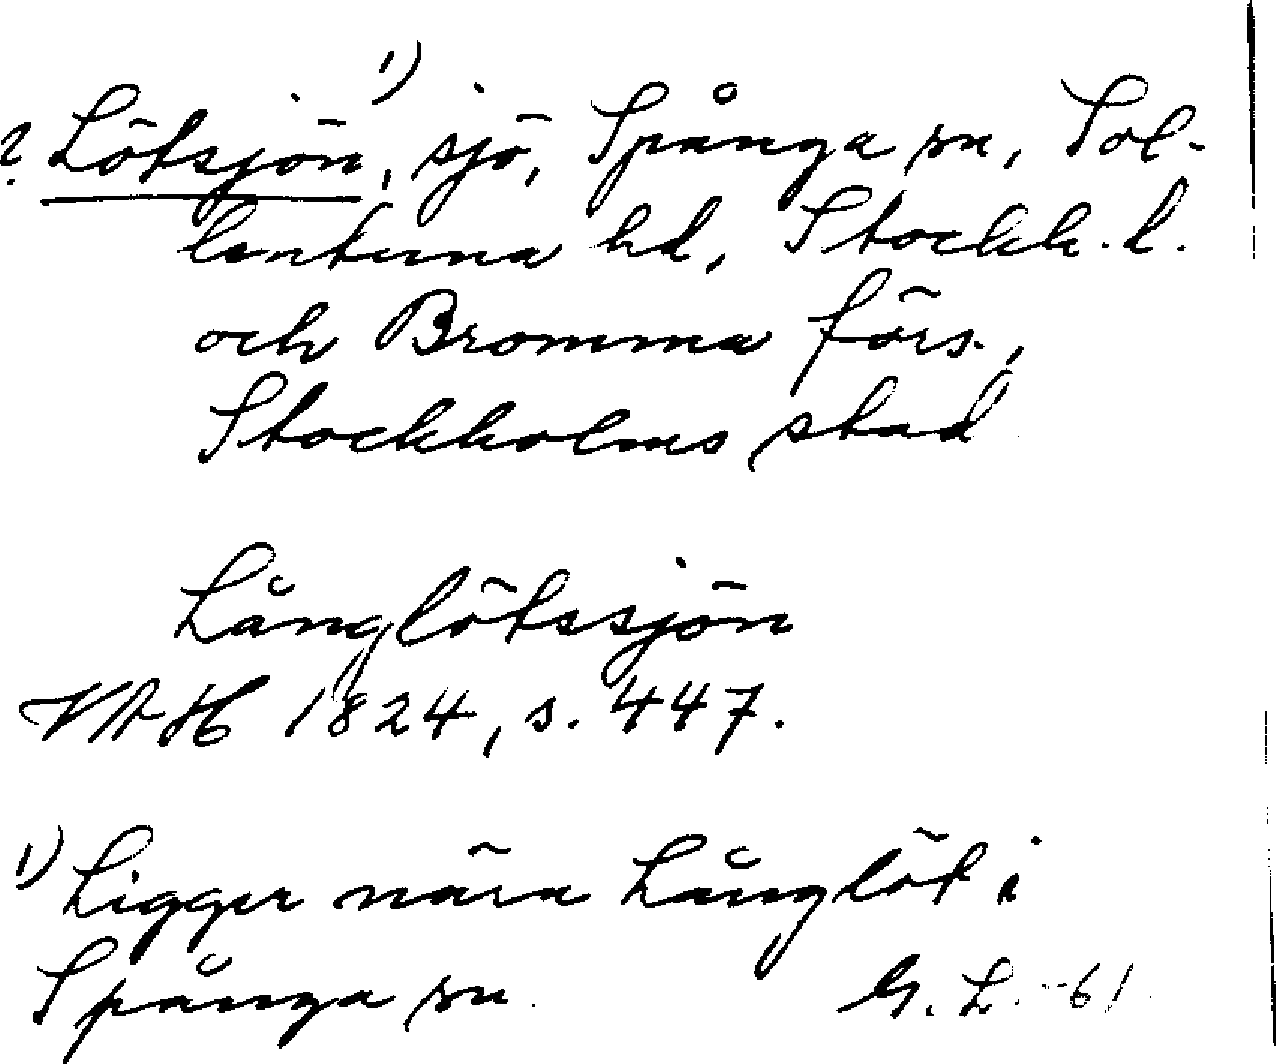 ? Lötsjön, 1) sjö, Spånga sn, Sol-
lentuna hd, Stockh. l.
och Bromma förs.,
Stockholms stad
Långlötssjön
VAH 1824, s. 447.
1) Ligger nära Långlöt i
Spånga sn. G. L. -61.